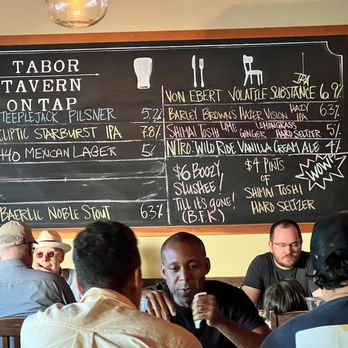 TABOR
TAVERN
ON TAP
STEEPLEJACK PILSNER 5.2%
ECLIPTIC STARBURST IPA 7.8%
440 MEXICAN LAGER 5%
BAERLIC NOBLE STOUT 6.3%
VON EBERT VOLATILE SUBSTANCE IPA 6.9%
BARLEY BROWN'S HAZY IPA 6.3%
SHIMAI TOSHI LIME LEMONGRASS GINGER HARD SELTZER 5%
NITRO: WILD RIDE VANILLA CREAM ALE 4%
$6 BOOZY
SLUSHEE!
TILL IT'S GONE!
(B.F.K)
$4 PINTS
OF
SHIMAI TOSHI
HARD SELTZER
WOW!